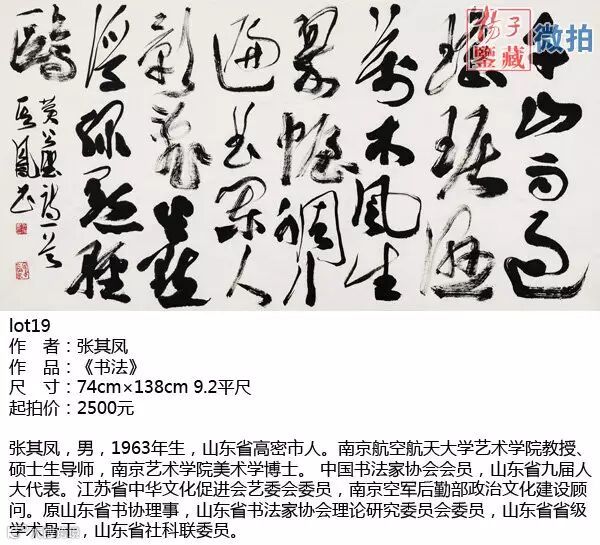 千山雨过
琼琚湿
万木风生
翠幄稠行
遍曲阑人
影乱半江
浮绿点轻
鸥
黄公望诗一首
其凤书
扬子
鉴藏
微拍
lot19
作　者：张其凤
作　品：《书法》
尺　寸：74cm×138cm 9.2平尺
起拍价：2500元
张其凤，男，1963年生，山东省高密市人。南京航空航天大学艺术学院教授、
硕士生导师，南京艺术学院美术学博士。 中国书法家协会会员，山东省九届人
大代表。江苏省中华文化促进会艺委会委员，南京空军后勤部政治文化建设顾
问。原山东省书协理事，山东省书法家协会理论研究委员会委员，山东省省级
学术骨干，山东省社科联委员。